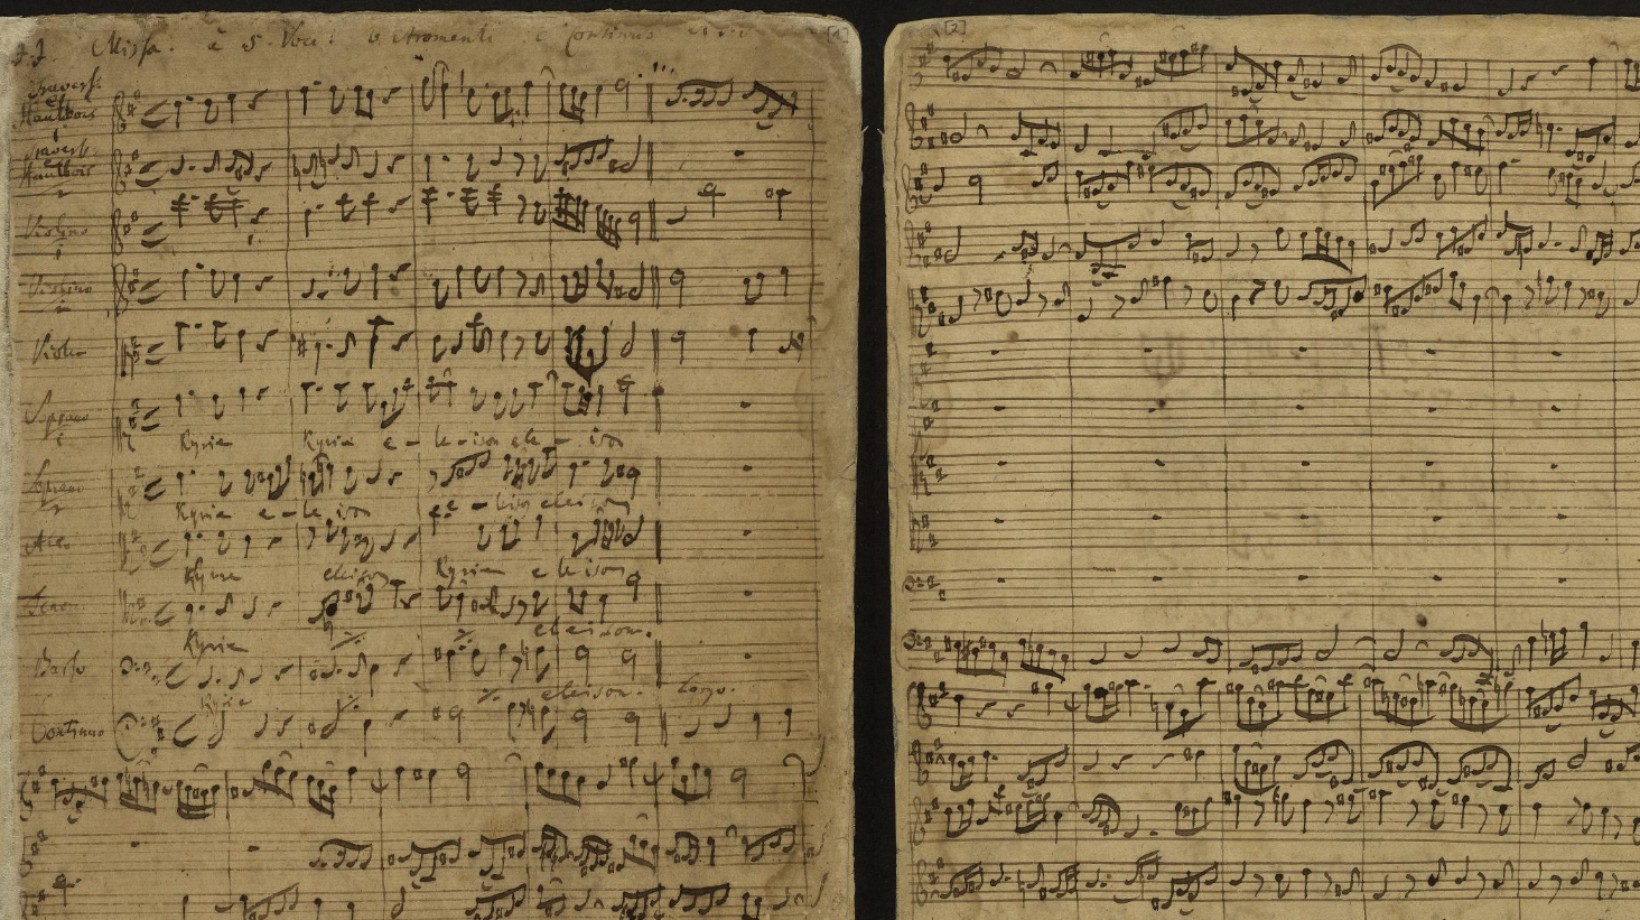 J.J. Missa. à 5. Voci 6 stromenti e Continuo
[1]
Travers.
et
Hautbois
1
Travers.
Hautbois
2
Violino
1
Violino
2
Viola
Soprano
1
Kyrie Kyrie e - le - ison ele - ison
Soprano
2
Kyrie e - le ison e - leison eleison
Alto
Kyrie eleison Kyrie eleison
Tenore
Kyrie ·/. ·/. eleison.
Basso
Kyrie ·/. ·/. eleison. Largo.
Continuo
[2]